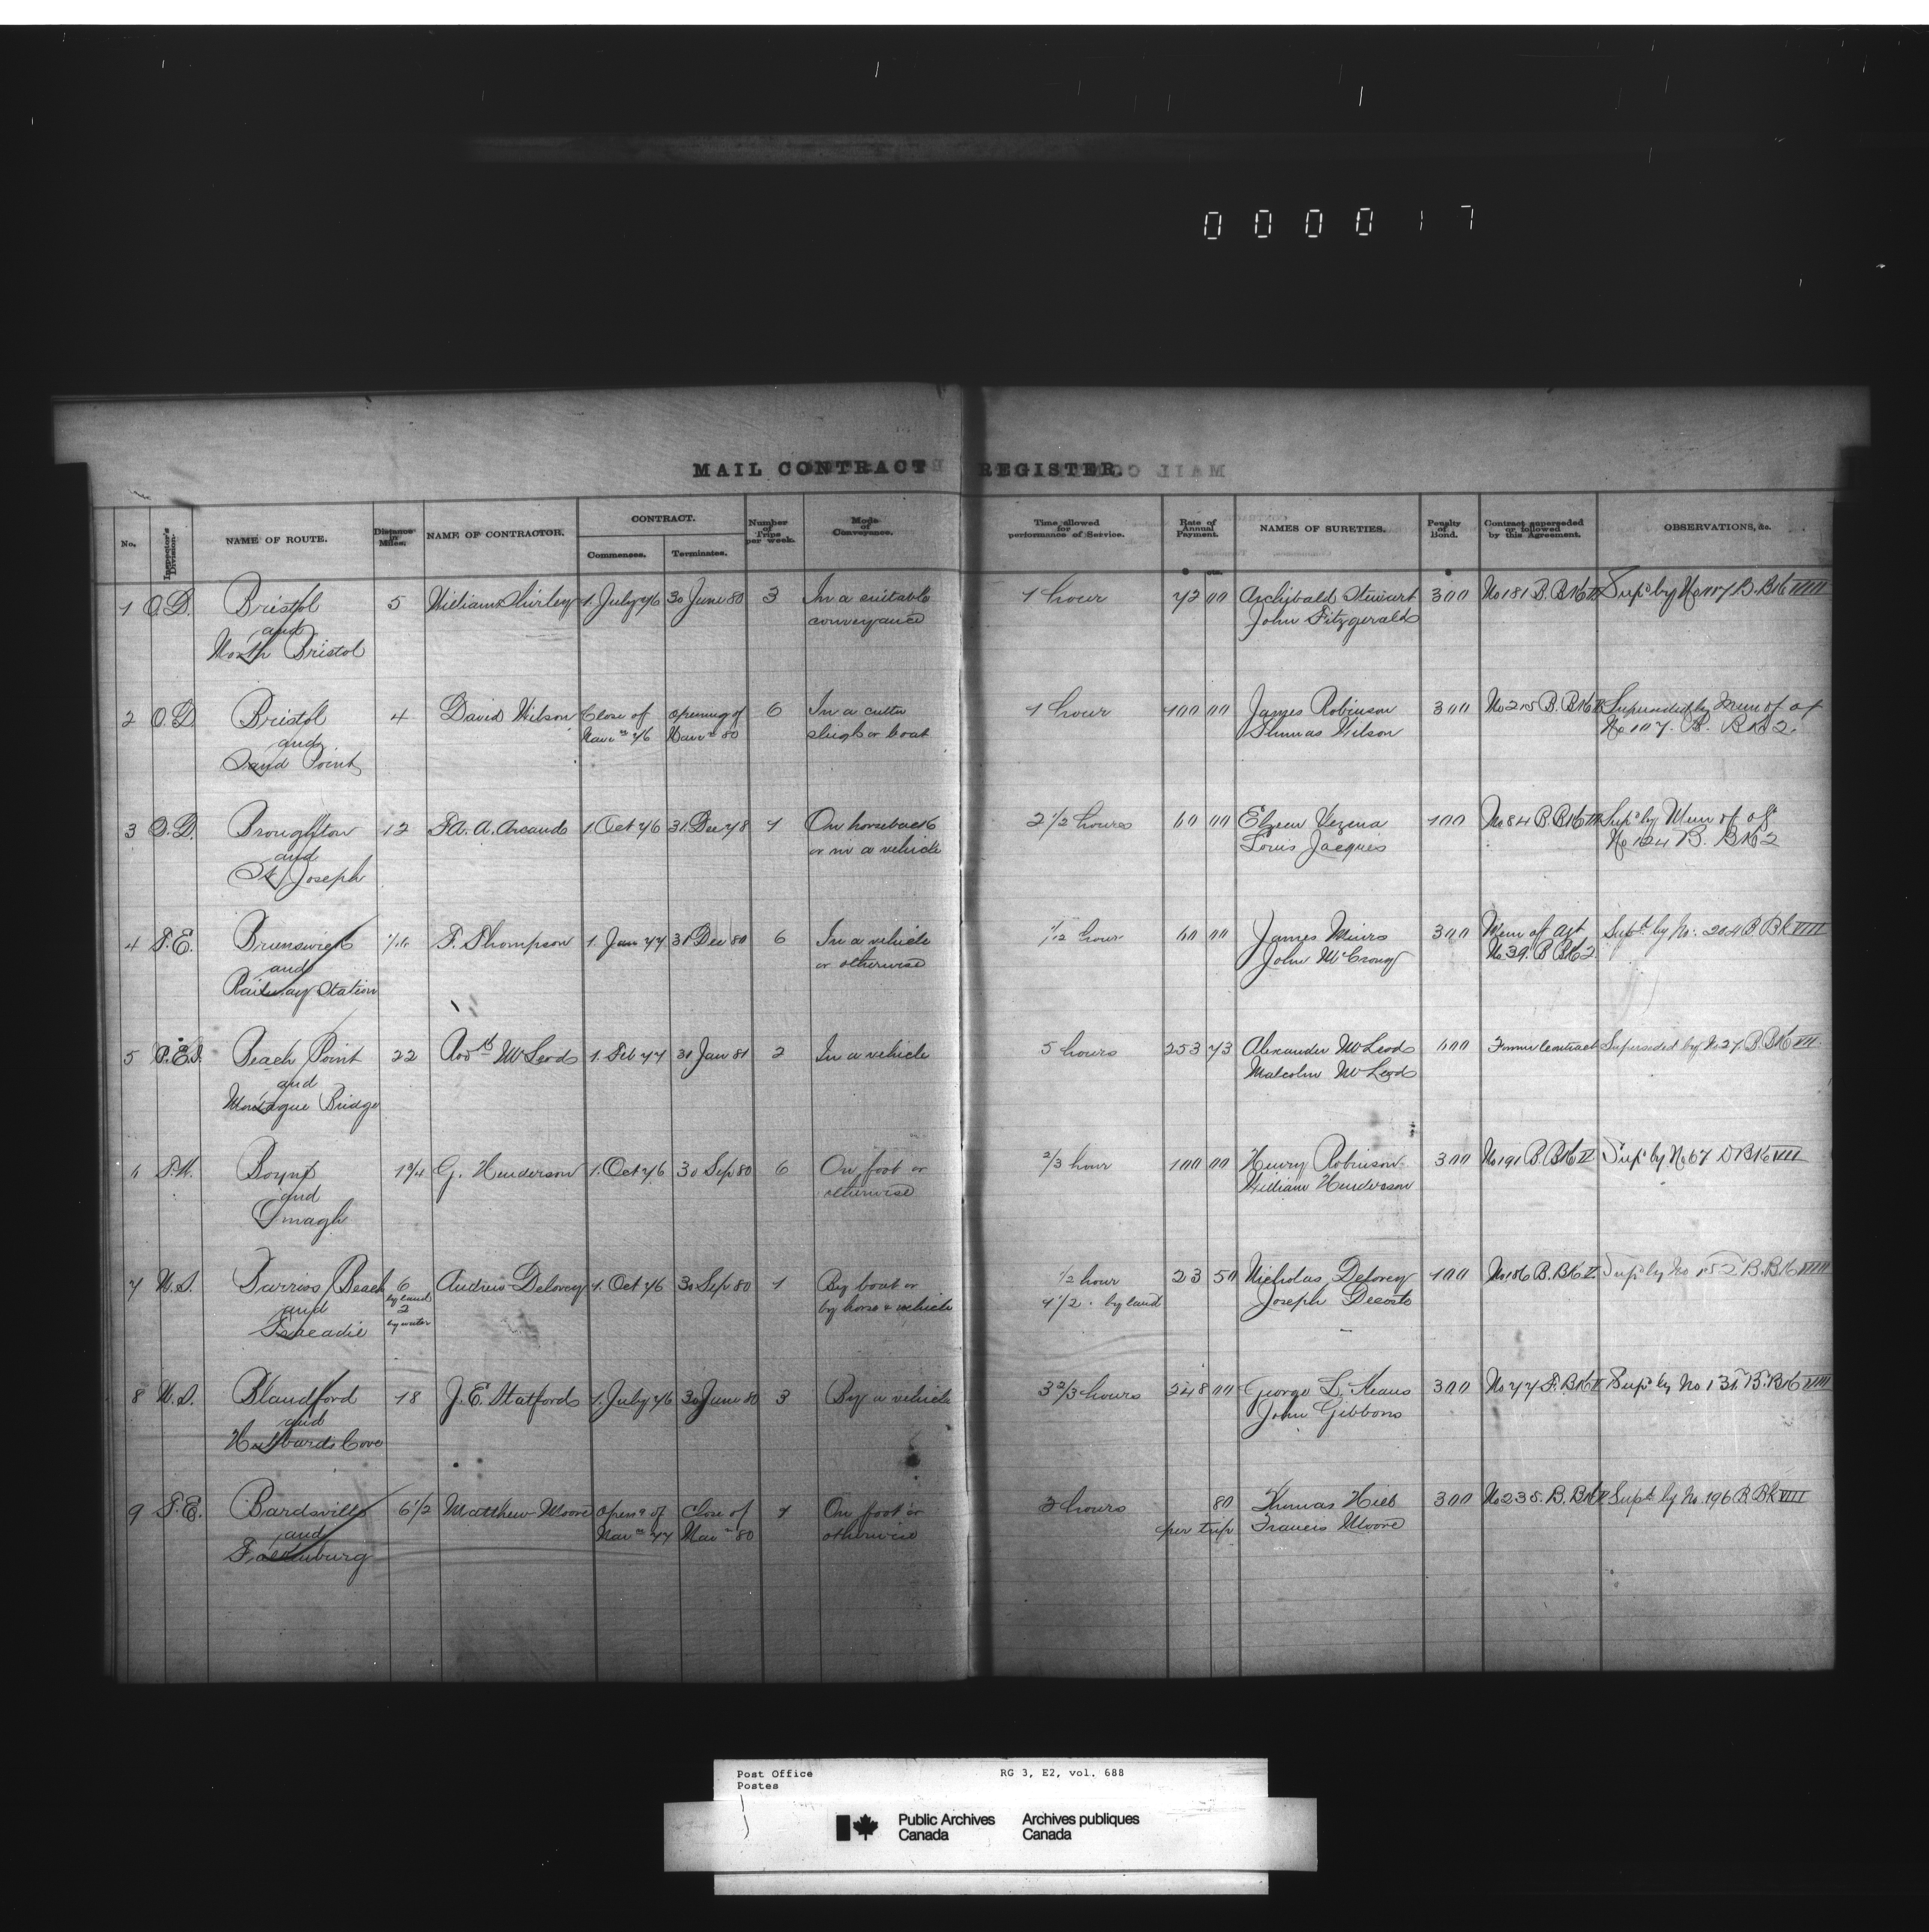 0 0 0 0 1 7
MAIL CONTRACT REGISTER.
No. Inspector's Division. NAME OF ROUTE. Distance in Miles. NAME OF CONTRACTOR. CONTRACT. Commences. Terminates. Number of Trips per week. Mode of Conveyance. Time allowed for performance of Service. Rate of Annual Payment. NAMES OF SURETIES. Penalty of Bond. Contract superseded or followed by this Agreement. OBSERVATIONS, &c.
$ cts. $
1 O.D. Bristol 5 William Shirley 1. July 76 30 June 80 3 In a suitable 1 hour 72 00 Archibald Stewart 300 No 181 B. Bk Supd by No 107 B. Bk VIII
and conveyance John Fitzgerald
North Bristol
2 O.D. Bristol 4 David Wilson Close of opening of 6 In a cutter 1 hour 100 00 James Robinson 300 No 215 B. Bk Superseded by Mem of at
and Navn 76 Navn 80 sleigh or boat Thomas Wilson No 107. B. Bk 2.
Sand Point
3 Q.D. Broughton 12 F.A. A. Arcand 1. Oct 76 31. Dec 78 1 On horseback 2 1/2 hours 60 00 Elzear Vezina 100 No 84 B. Bk Supd by Mem of agt
and or in a vehicle Louis Jacques No 124 B. Bk 2
St Joseph
4 T.E. Brunswick 1/16 F. Thompson 1. Jan 77 31 Dec 80 6 In a vehicle 1/2 hour 60 00 James Muirs 300 Mem of agt Supd by No. 204 B. Bk VIII
and or otherwise John McCrony No 39. B Bk 2
Railway Station
5 P.E.I. Beach Point 22 Rodk McLeod 1. Feb 77 31 Jan 81 2 In a vehicle 5 hours 253 73 Alexander McLeod 600 Former Contract Superseded by No 27. B. Bk VII.
and Malcolm McLeod
Montague Bridge
6 T.W. Boyne 1 3/4 G. Henderson 1. Oct 76 30 Sep 80 6 On foot or 2/3 hour 100 00 Henry Robinson 300 No 191 B. Bk II Supd by No 67 D Bk VII
and otherwise William Henderson
Omagh
7 N.S. Barrios Beach 6 Andrew Delorey 1. Oct 76 30 Sep 80 1 By boat or 1/2 hour 23 50 Nicholas Delorey 100 No 106 B. Bk Supd by No 152 B. Bk VIII
and by land 2 by water by horse & vehicle 1 1/2 " by land Joseph Decoste
Tracadie
8 N.S. Blandford 18 J. E. Statford 1. July 76 30 June 80 3 By a vehicle 3 2/3 hours 248 00 George L. Keans 300 No 77 F. Bk Supd by No 131. B. Bk VIII
and John Gibbons
Hubbards Cove
9 T.E. Bardsville 6 1/2 Matthew Moore opens of close of 1 On foot or 3 hours 80 Thomas Hill 300 No 235. B. Bk Supd by No. 196 B. Bk VIII
and Navn 77 Navn 80 otherwise per trip Francis Moore
Falkenburg
Post Office RG 3, E2, vol. 688
Postes
Public Archives Archives publiques
Canada Canada